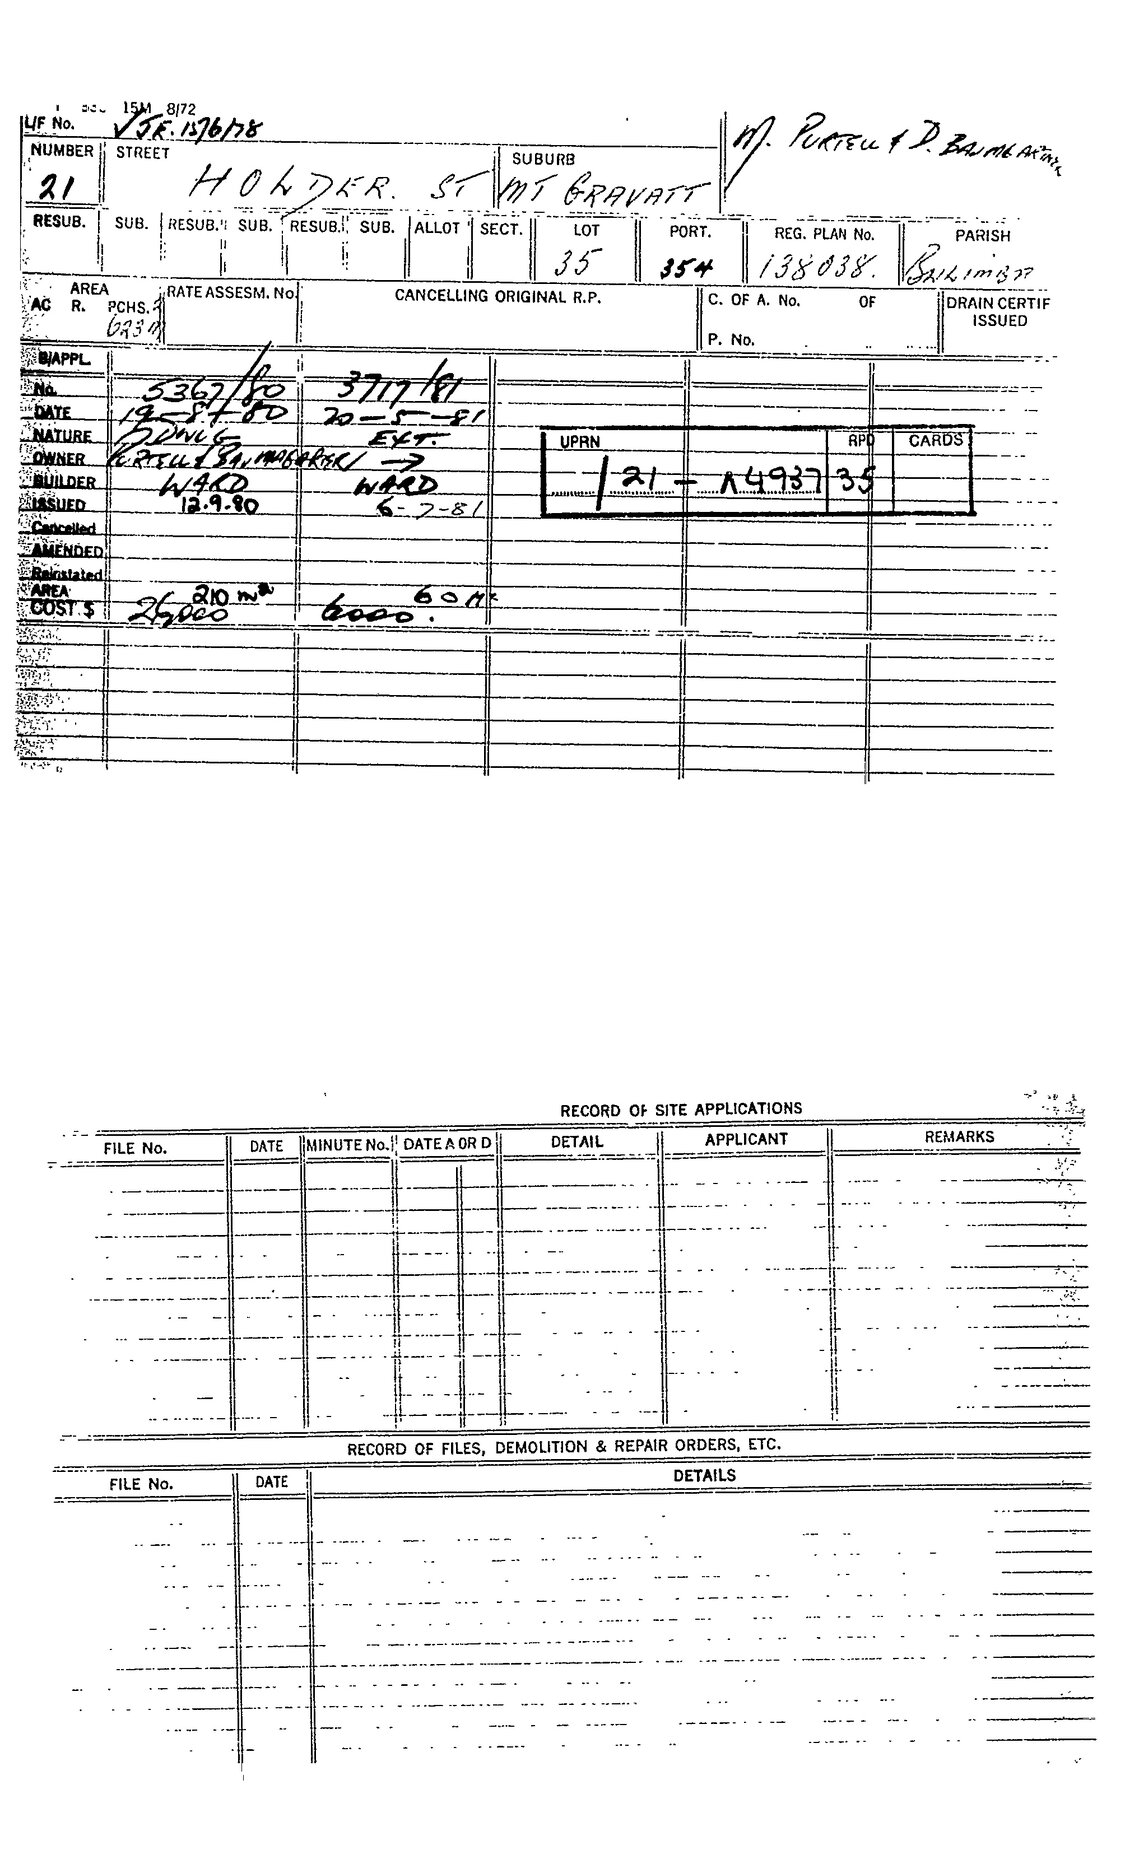 15M 8/72
L/F No. √ J.E. 15/6/78
M. PURTELL & D. BAUMGARTNER
NUMBER STREET SUBURB
21 HOLDER. ST MT GRAVATT
RESUB. SUB. RESUB. SUB. RESUB. SUB. ALLOT SECT. LOT PORT. REG. PLAN No. PARISH
35 354 138038. BULIMBA
AREA RATE ASSESM. No. CANCELLING ORIGINAL R.P. C. OF A. No. OF DRAIN CERTIF
AC R. PCHS. ISSUED
623 P. No.
B/APPL.
No. 5367/80 3717/81
DATE 19-8-80 20-5-81
NATURE DWLG EXT.
OWNER PURTELL & BAUMGARTNER →
BUILDER WARD WARD
ISSUED 12.9.80 6-7-81
Cancelled
AMENDED
Reinstated
AREA 210 m² 60 M²
COST $ 26,000 6000.
UPRN RPD CARDS
/ 21 - A4937 35
RECORD OF SITE APPLICATIONS
FILE No. DATE MINUTE No. DATE A OR D DETAIL APPLICANT REMARKS
RECORD OF FILES, DEMOLITION & REPAIR ORDERS, ETC.
FILE No. DATE DETAILS